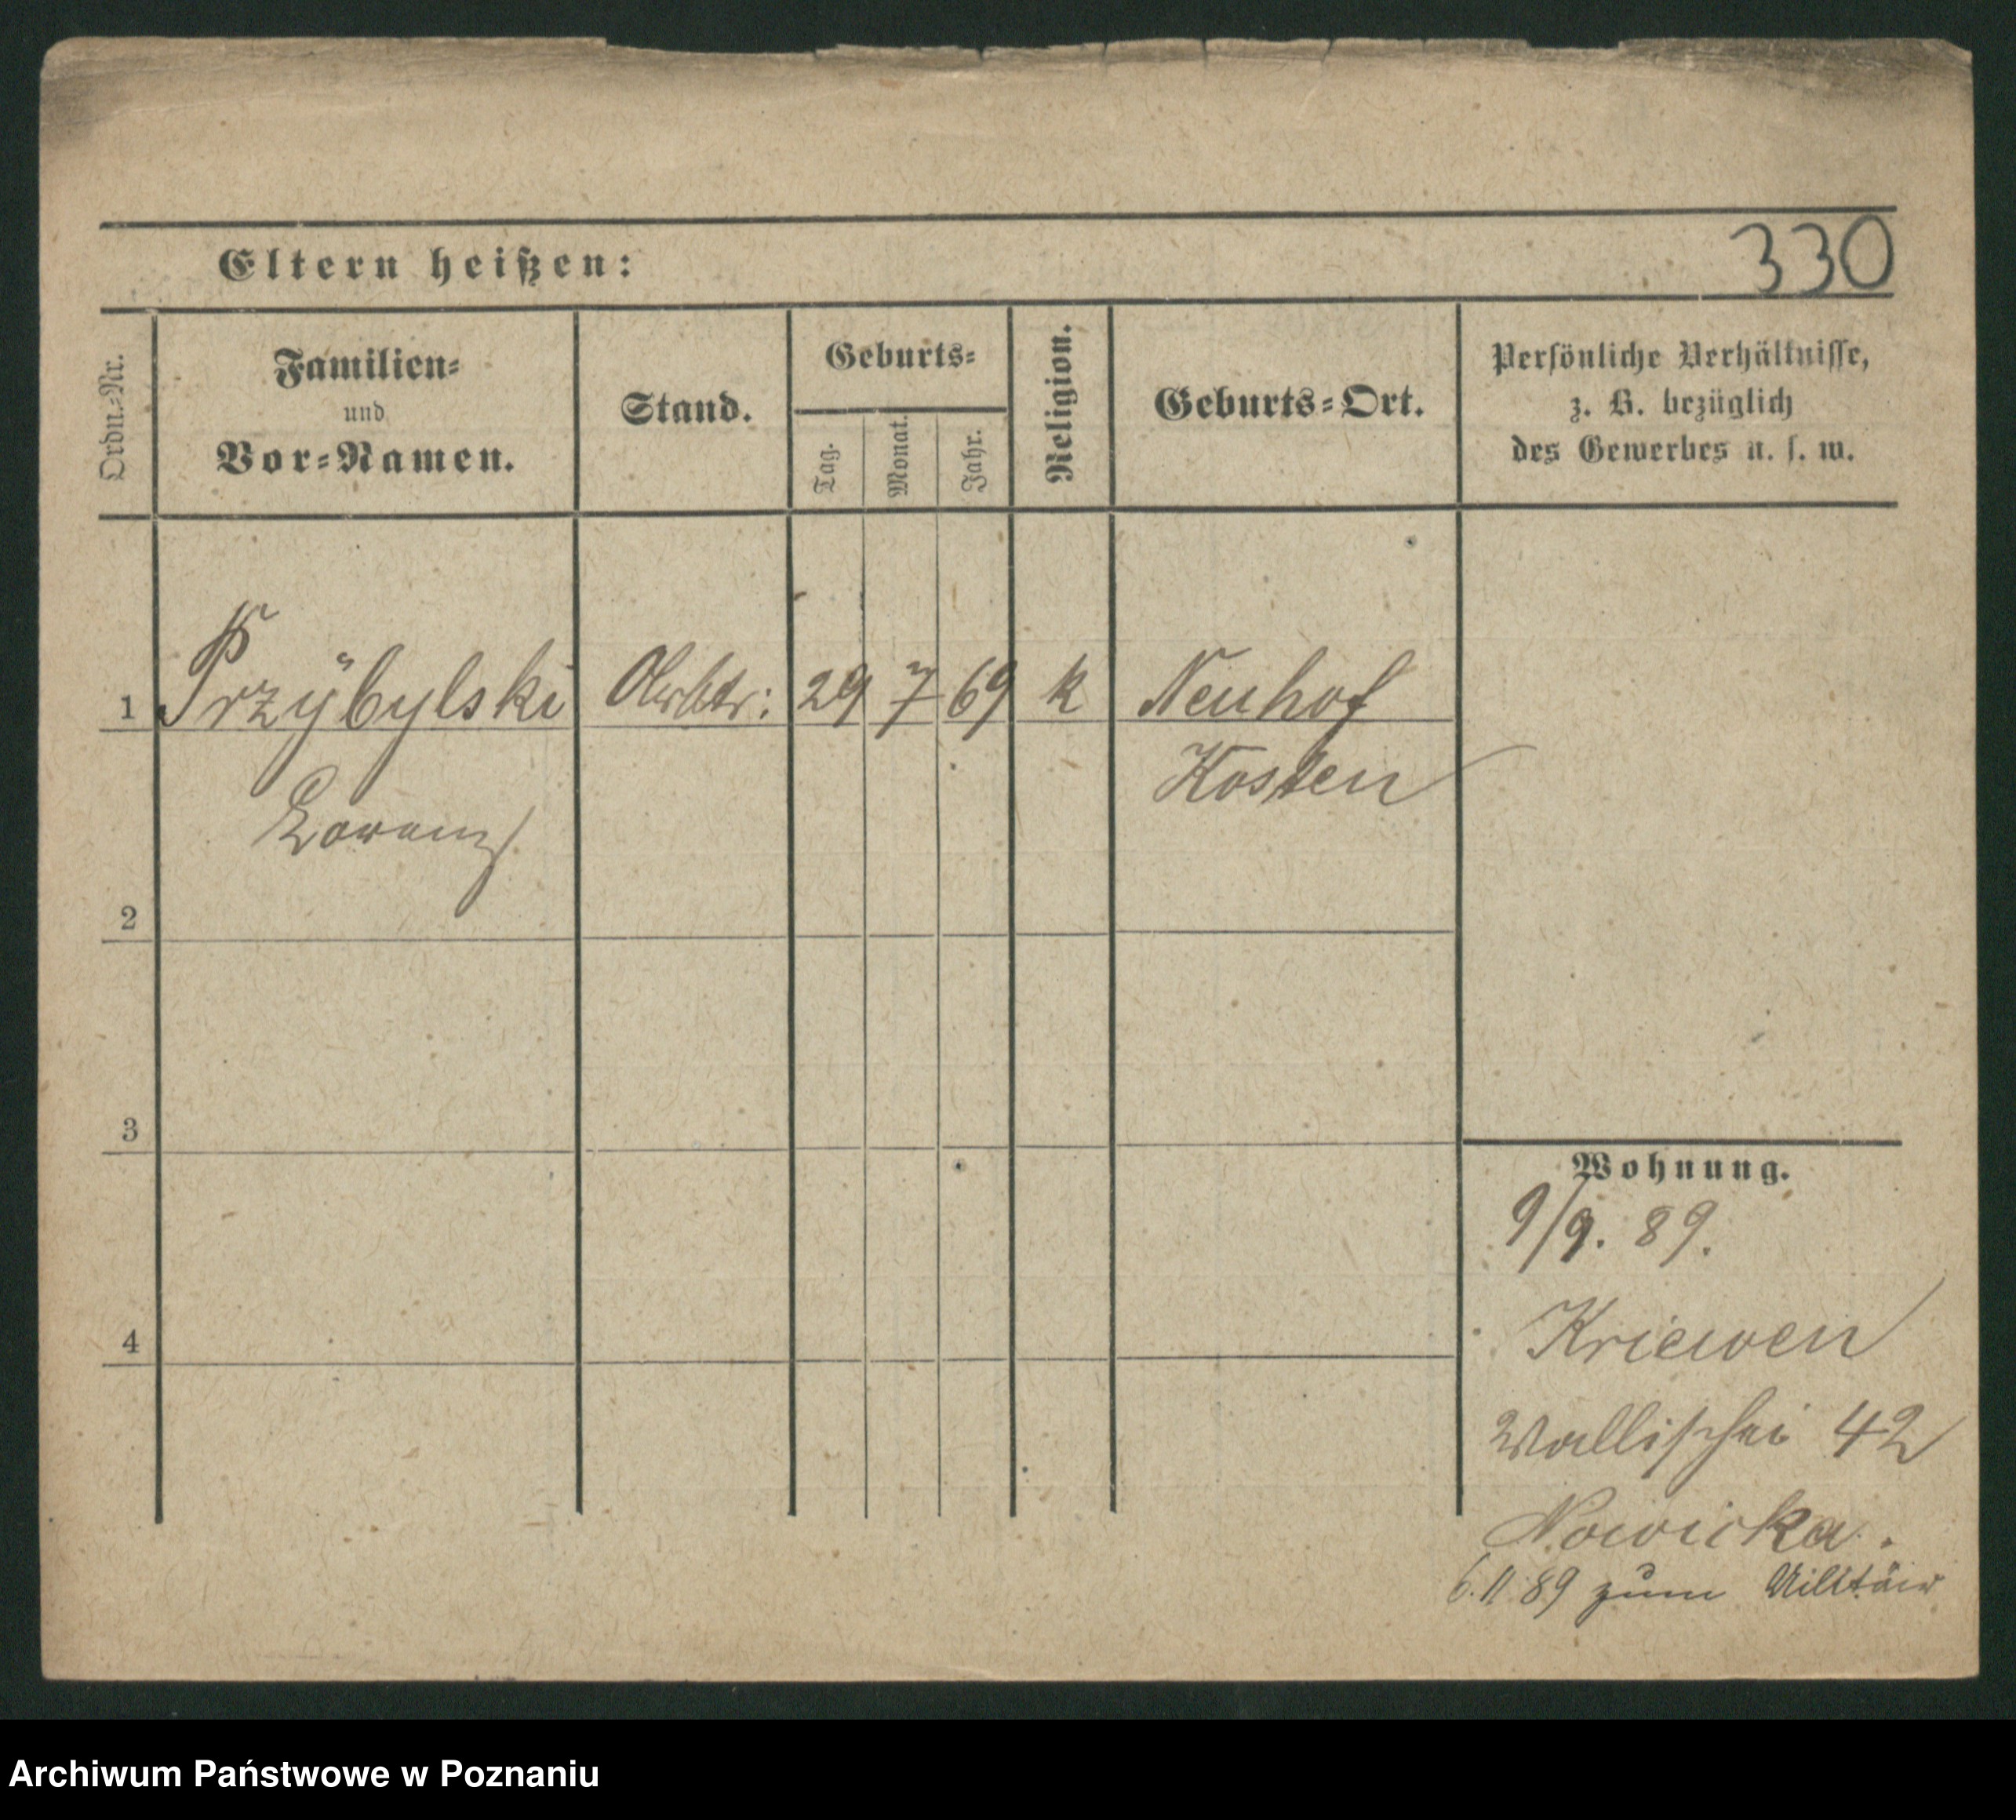 330
Eltern heißen:
Ordn.-Nr.
Familien-
und
Vor-Namen.
Stand.
Geburts-
Tag.
Monat.
Jahr.
Religion.
Geburts-Ort.
Persönliche Verhältnisse,
z. B. bezüglich
des Gewerbes u. s. w.
1 Przÿbylski 29 7 69 k Neuhof
Kosten
Lorenz
2
3
4
Wohnung.
9/9. 89.
Kriewen
Wallischei 42
Nowicka.
6.11 89 zum Militär
Archiwum Państwowe w Poznaniu